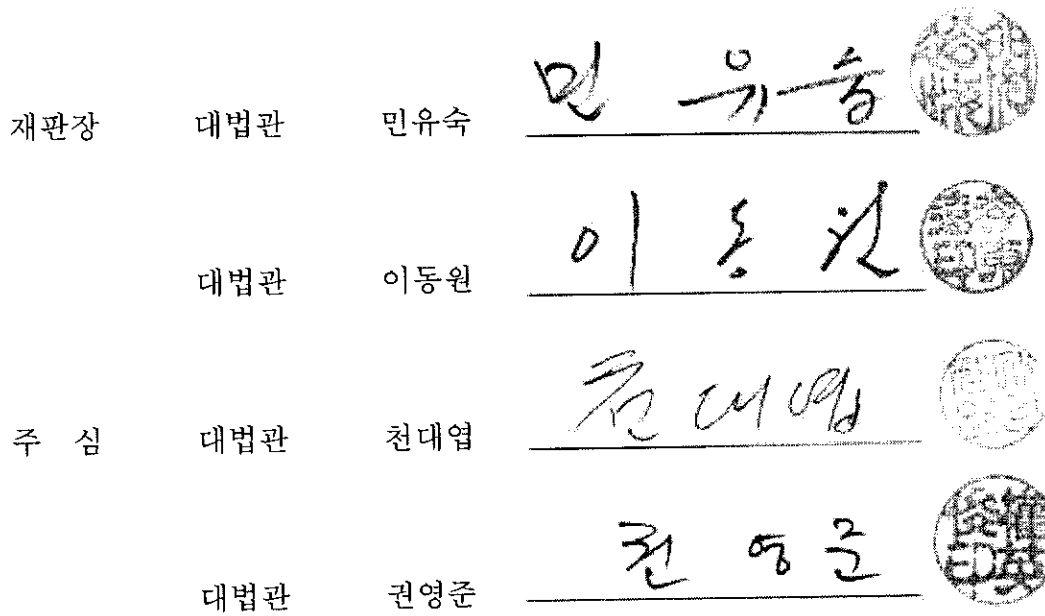 재판장 대법관 민유숙 민 유 숙
대법관 이동원 이 동 원
주 심 대법관 천대엽 천 대 엽
대법관 권영준 권 영 준